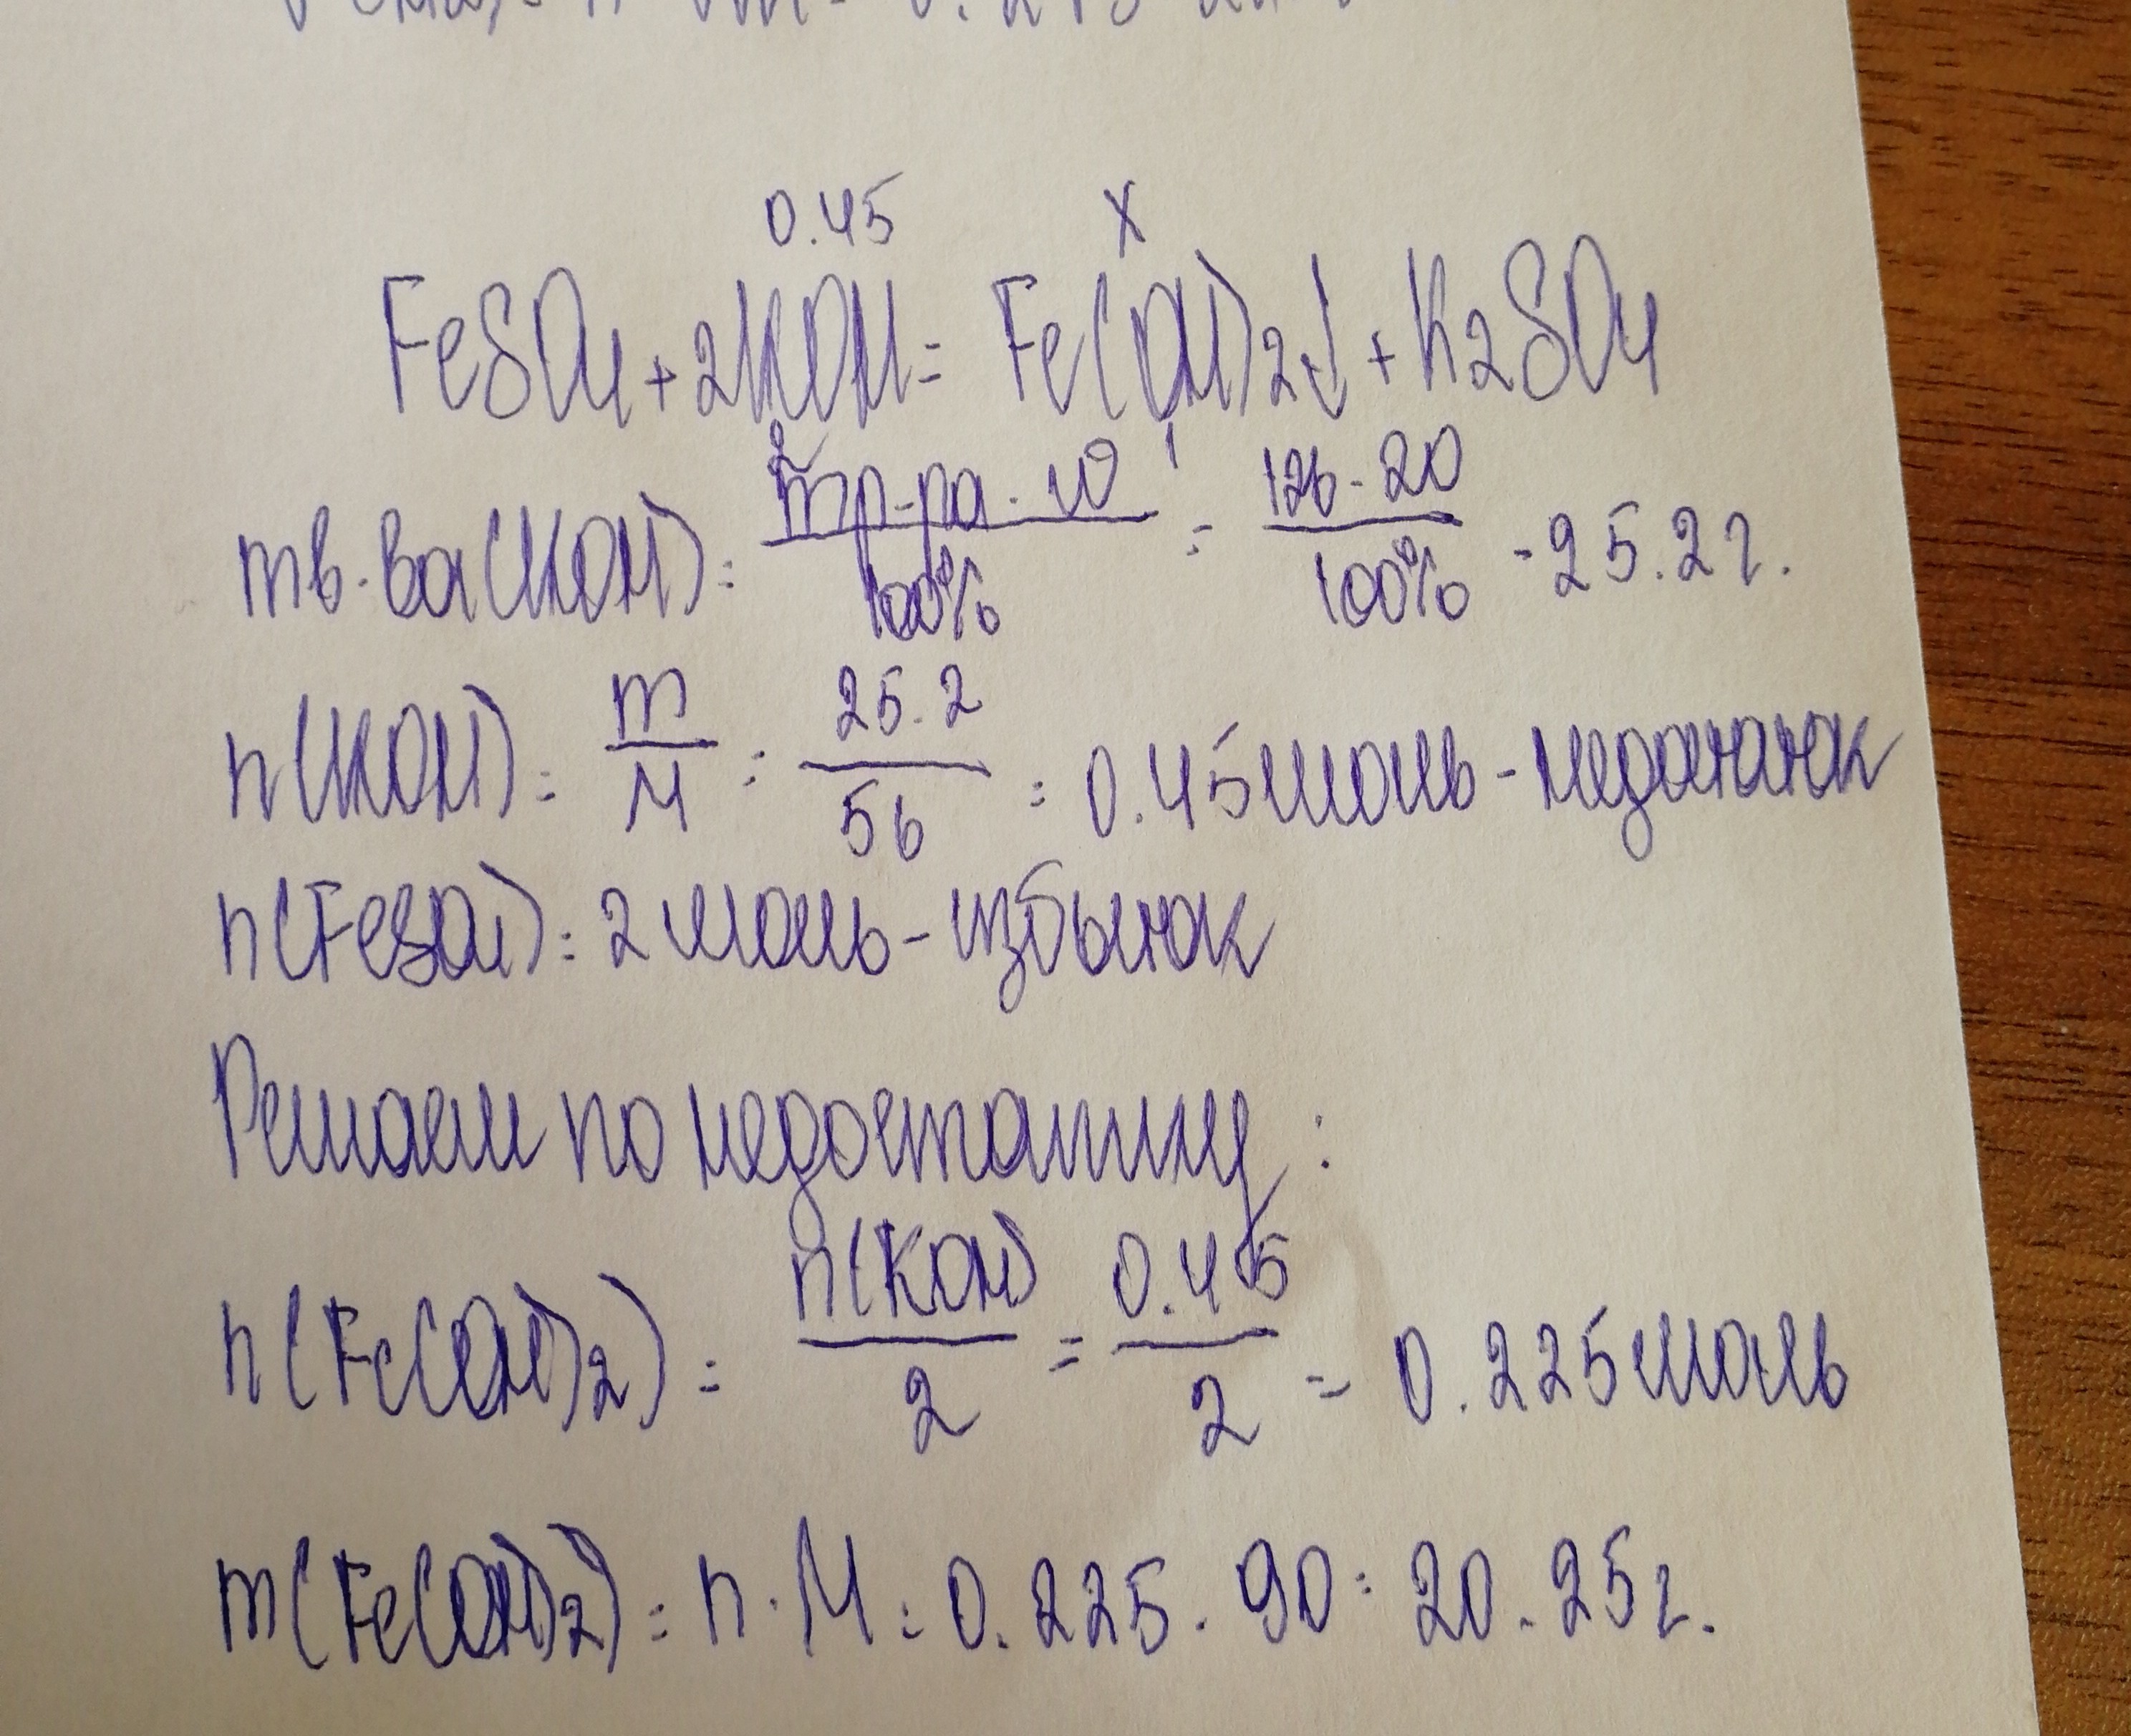 0.45 x
FeSO4+2KOH=Fe(OH)2↓+K2SO4
mв-ва(KOH)=mр-ра·ω/100%=126·20/100%=25.2г.
n(KOH)=m/M=25.2/56=0.45моль-недостаток
n(FeSO4)=2моль-избыток
Решаем по недостатку:
n(Fe(OH)2)=n(KOH)/2=0.45/2=0.225моль
m(Fe(OH)2)=n·M=0.225·90=20.25г.